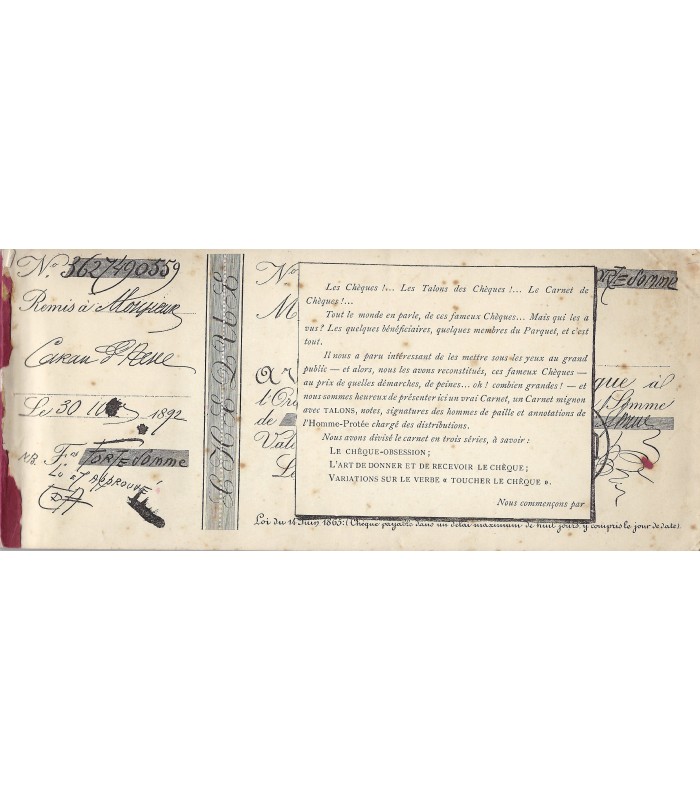 Nº 3627490559
Remis à Monsieur
Caran d'Ache
Le 30 1892
NB. Fcs FORTE SOMME
Lu et APPROUVÉ !
CHÈQUE
Nº
FORTE SOMME
M
chèque à
l'Or
Somme
de
Vale
Le
Les Chèques !... Les Talons des Chèques !... Le Carnet de
Chèques !...
Tout le monde en parle, de ces fameux Chèques... Mais qui les a
vus ? Les quelques bénéficiaires, quelques membres du Parquet, et c'est
tout.
Il nous a paru intéressant de les mettre sous les yeux au grand
public — et alors, nous les avons reconstitués, ces fameux Chèques —
au prix de quelles démarches, de peines... oh ! combien grandes ! — et
nous sommes heureux de présenter ici un vrai Carnet, un Carnet mignon
avec TALONS, notes, signatures des hommes de paille et annotations de
l'Homme-Protée chargé des distributions.
Nous avons divisé le carnet en trois séries, à savoir :
LE CHÈQUE-OBSESSION ;
L'ART DE DONNER ET DE RECEVOIR LE CHÈQUE ;
VARIATIONS SUR LE VERBE « TOUCHER LE CHÈQUE ».
Nous commençons par
Loi du 14 Juin 1865: (Chèque payable dans un délai maximum de huit jours y compris le jour de date)